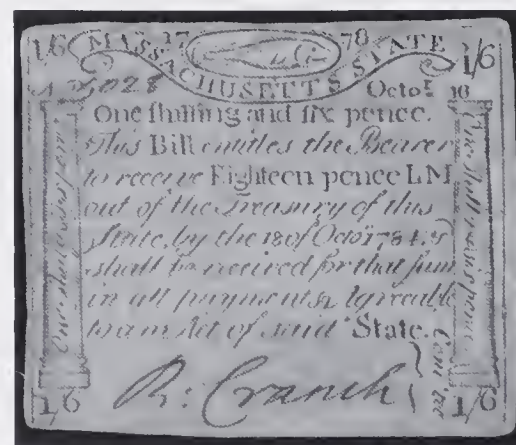 1/6 MASS 37 78 1/6
MASSACHUSETTS STATE
Octor. 16
One shilling and six pence.
This Bill entitles the Bearer
to receive Eighteen pence LM
out of the Treasury of this
State, by the 18 of Octor. 1784, &
shall be received for that sum
in all payments, Agreeable
to an Act of said State.
R: Cranch
Com tee
One shilling & six pence
One shilling & six pence
1/6 1/6